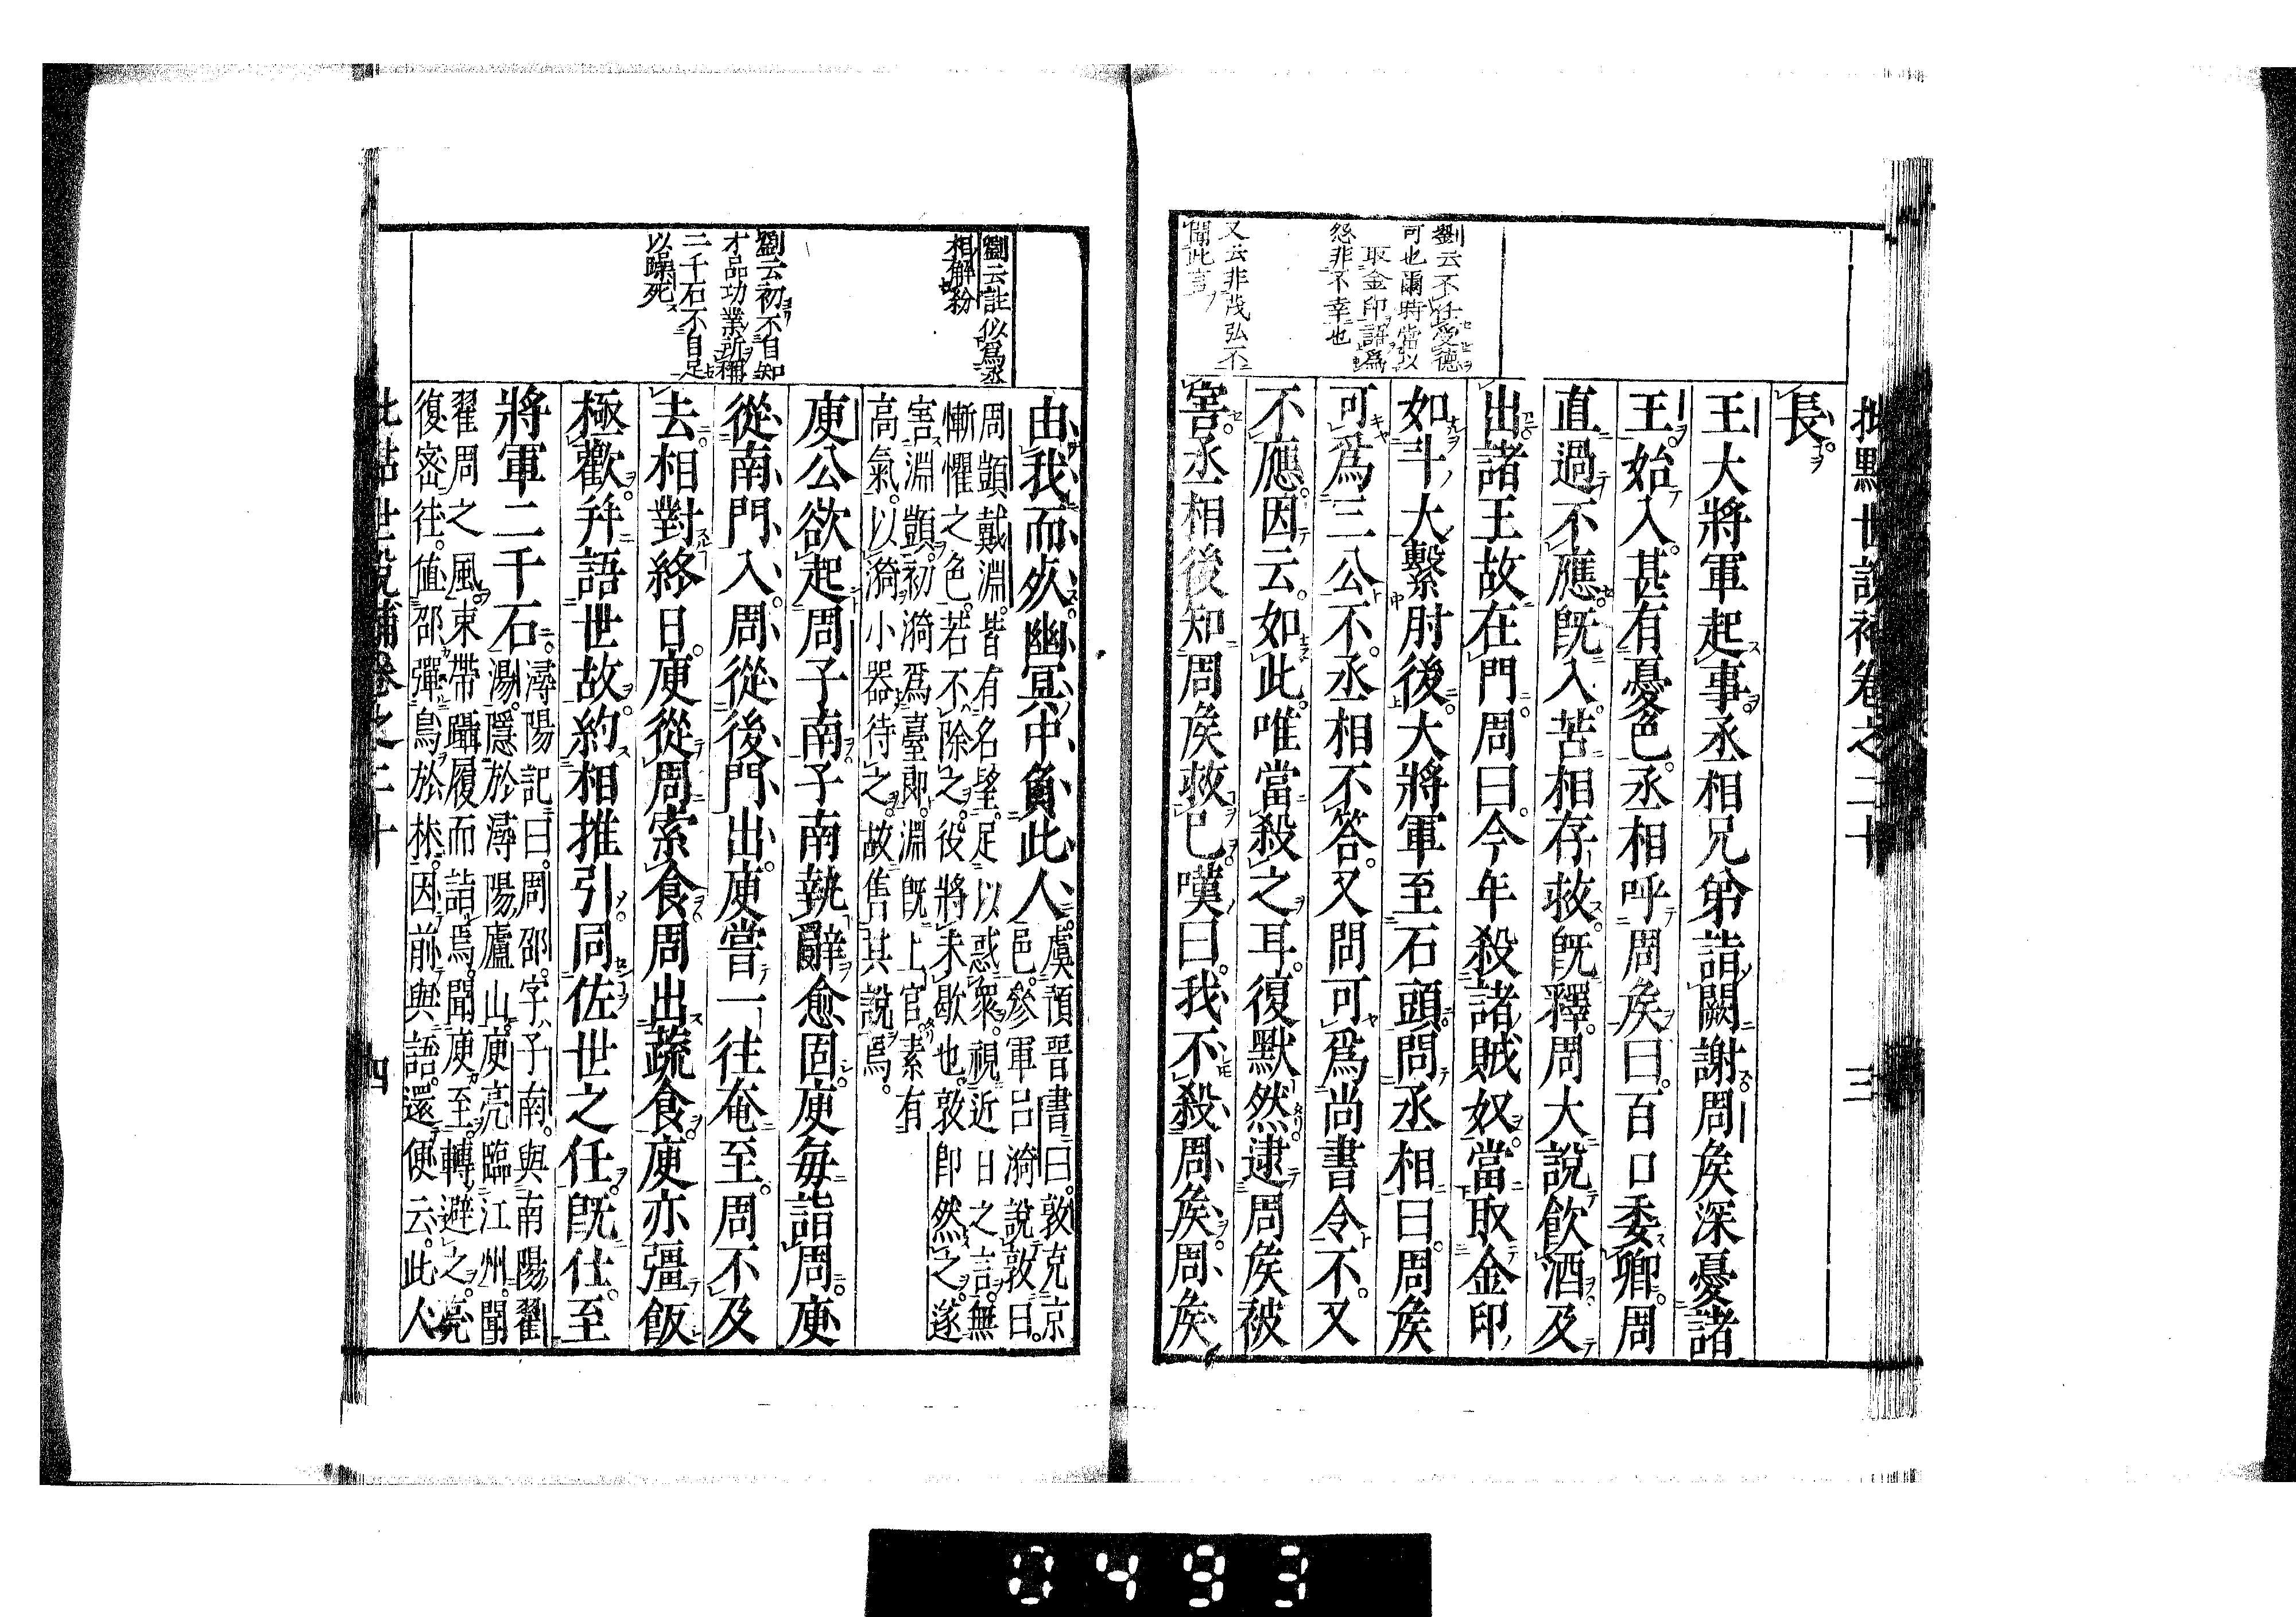 批點世說補卷之二十 三
劉云不任受德
可也爾時當以
取金印語爲
怨非不幸也
又云非茂弘不
聞此言
長
王大將軍起事丞相兄弟詣闕謝周矦深憂諸
王始入甚有憂色丞相呼周矦曰百口委卿周
直過不應旣入苦相存救旣釋周大說飮酒及
出諸王故在門周曰今年殺諸賊奴當取金印
如斗大繫肘後大將軍至石頭問丞相曰周矦
可爲三公不丞相不答又問可爲尚書令不又
不應因云如此唯當殺之耳復默然逮周矦被
害丞相後知周矦救己嘆曰我不殺周矦周矦
劉云註似爲丞
相解紛
劉云初不自知
才品功業所稱
二千石不自足
以躁死
由我而死幽冥中負此人虞預晉書曰敦克京
邑參軍呂漪說敦曰
周顗戴淵皆有名望足以惑衆視近日之言無
慚懼之色若不除之役將未歇也敦卽然之遂
害淵顗初漪爲臺郎淵旣上官素有
高氣以漪小器待之故售其說焉
庾公欲起周子南子南執辭愈固庾每詣周庾
從南門入周從後門出庾嘗一往奄至周不及
去相對終日庾從周索食周出蔬食庾亦彊飯
極歡幷語世故約相推引同佐世之任旣仕至
將軍二千石潯陽記曰周邵字子南與南陽翟
湯隱於潯陽廬山庾亮臨江州聞
翟周之風束帶躡履而詣焉聞庾至轉避之亮
復密往値邵彈鳥於林因前與語還便云此人
批點世說補卷之二十 四
0493